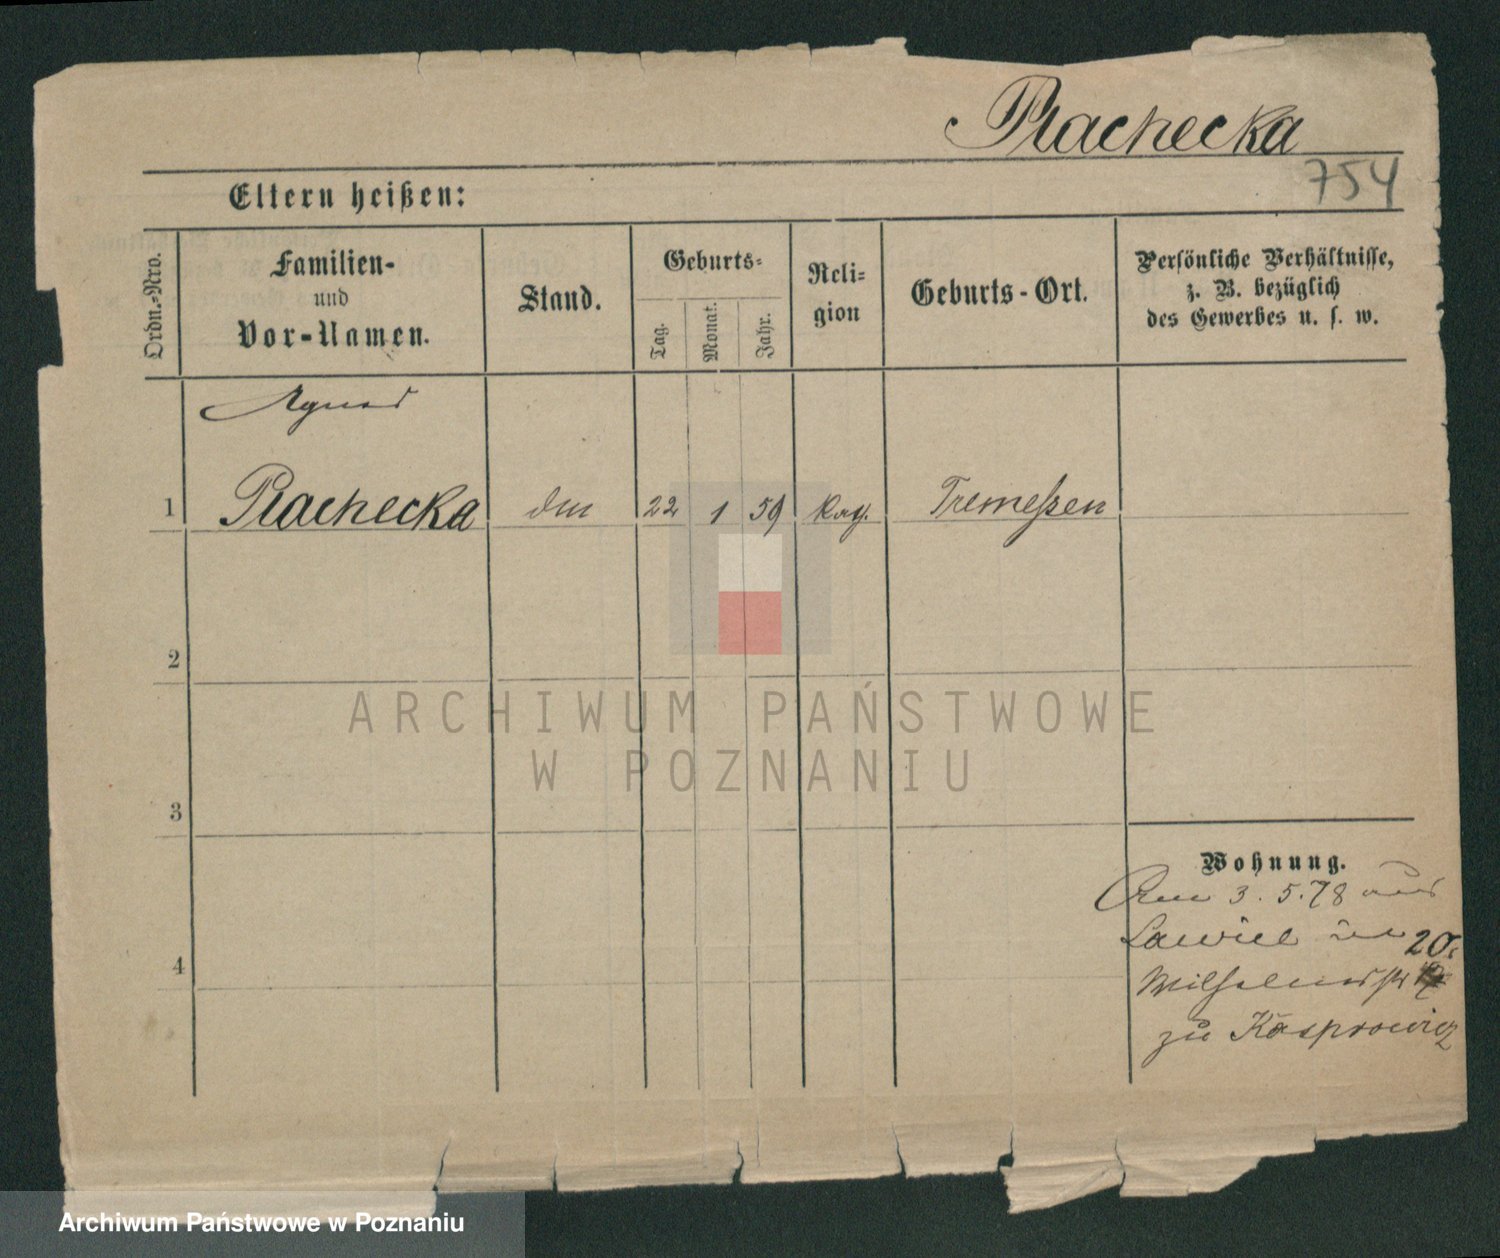 Rachecka
754
Eltern heißen:
Ordn.-Nro.
Familien-
und
Vor-Namen.
Stand.
Geburts-
Tag.
Monat.
Jahr.
Reli-
gion
Geburts-Ort.
Persönliche Verhältnisse,
z. B. bezüglich
des Gewerbes u. s. w.
Agnes
1 Rachecka 22 1 59 Tremeszen
2
3
4
Wohnung.
Am 3. 5. 78 aus
in 20.
Wilhelmstr
zu Kasprowicz
ARCHIWUM PAŃSTWOWE
W POZNANIU
Archiwum Państwowe w Poznaniu